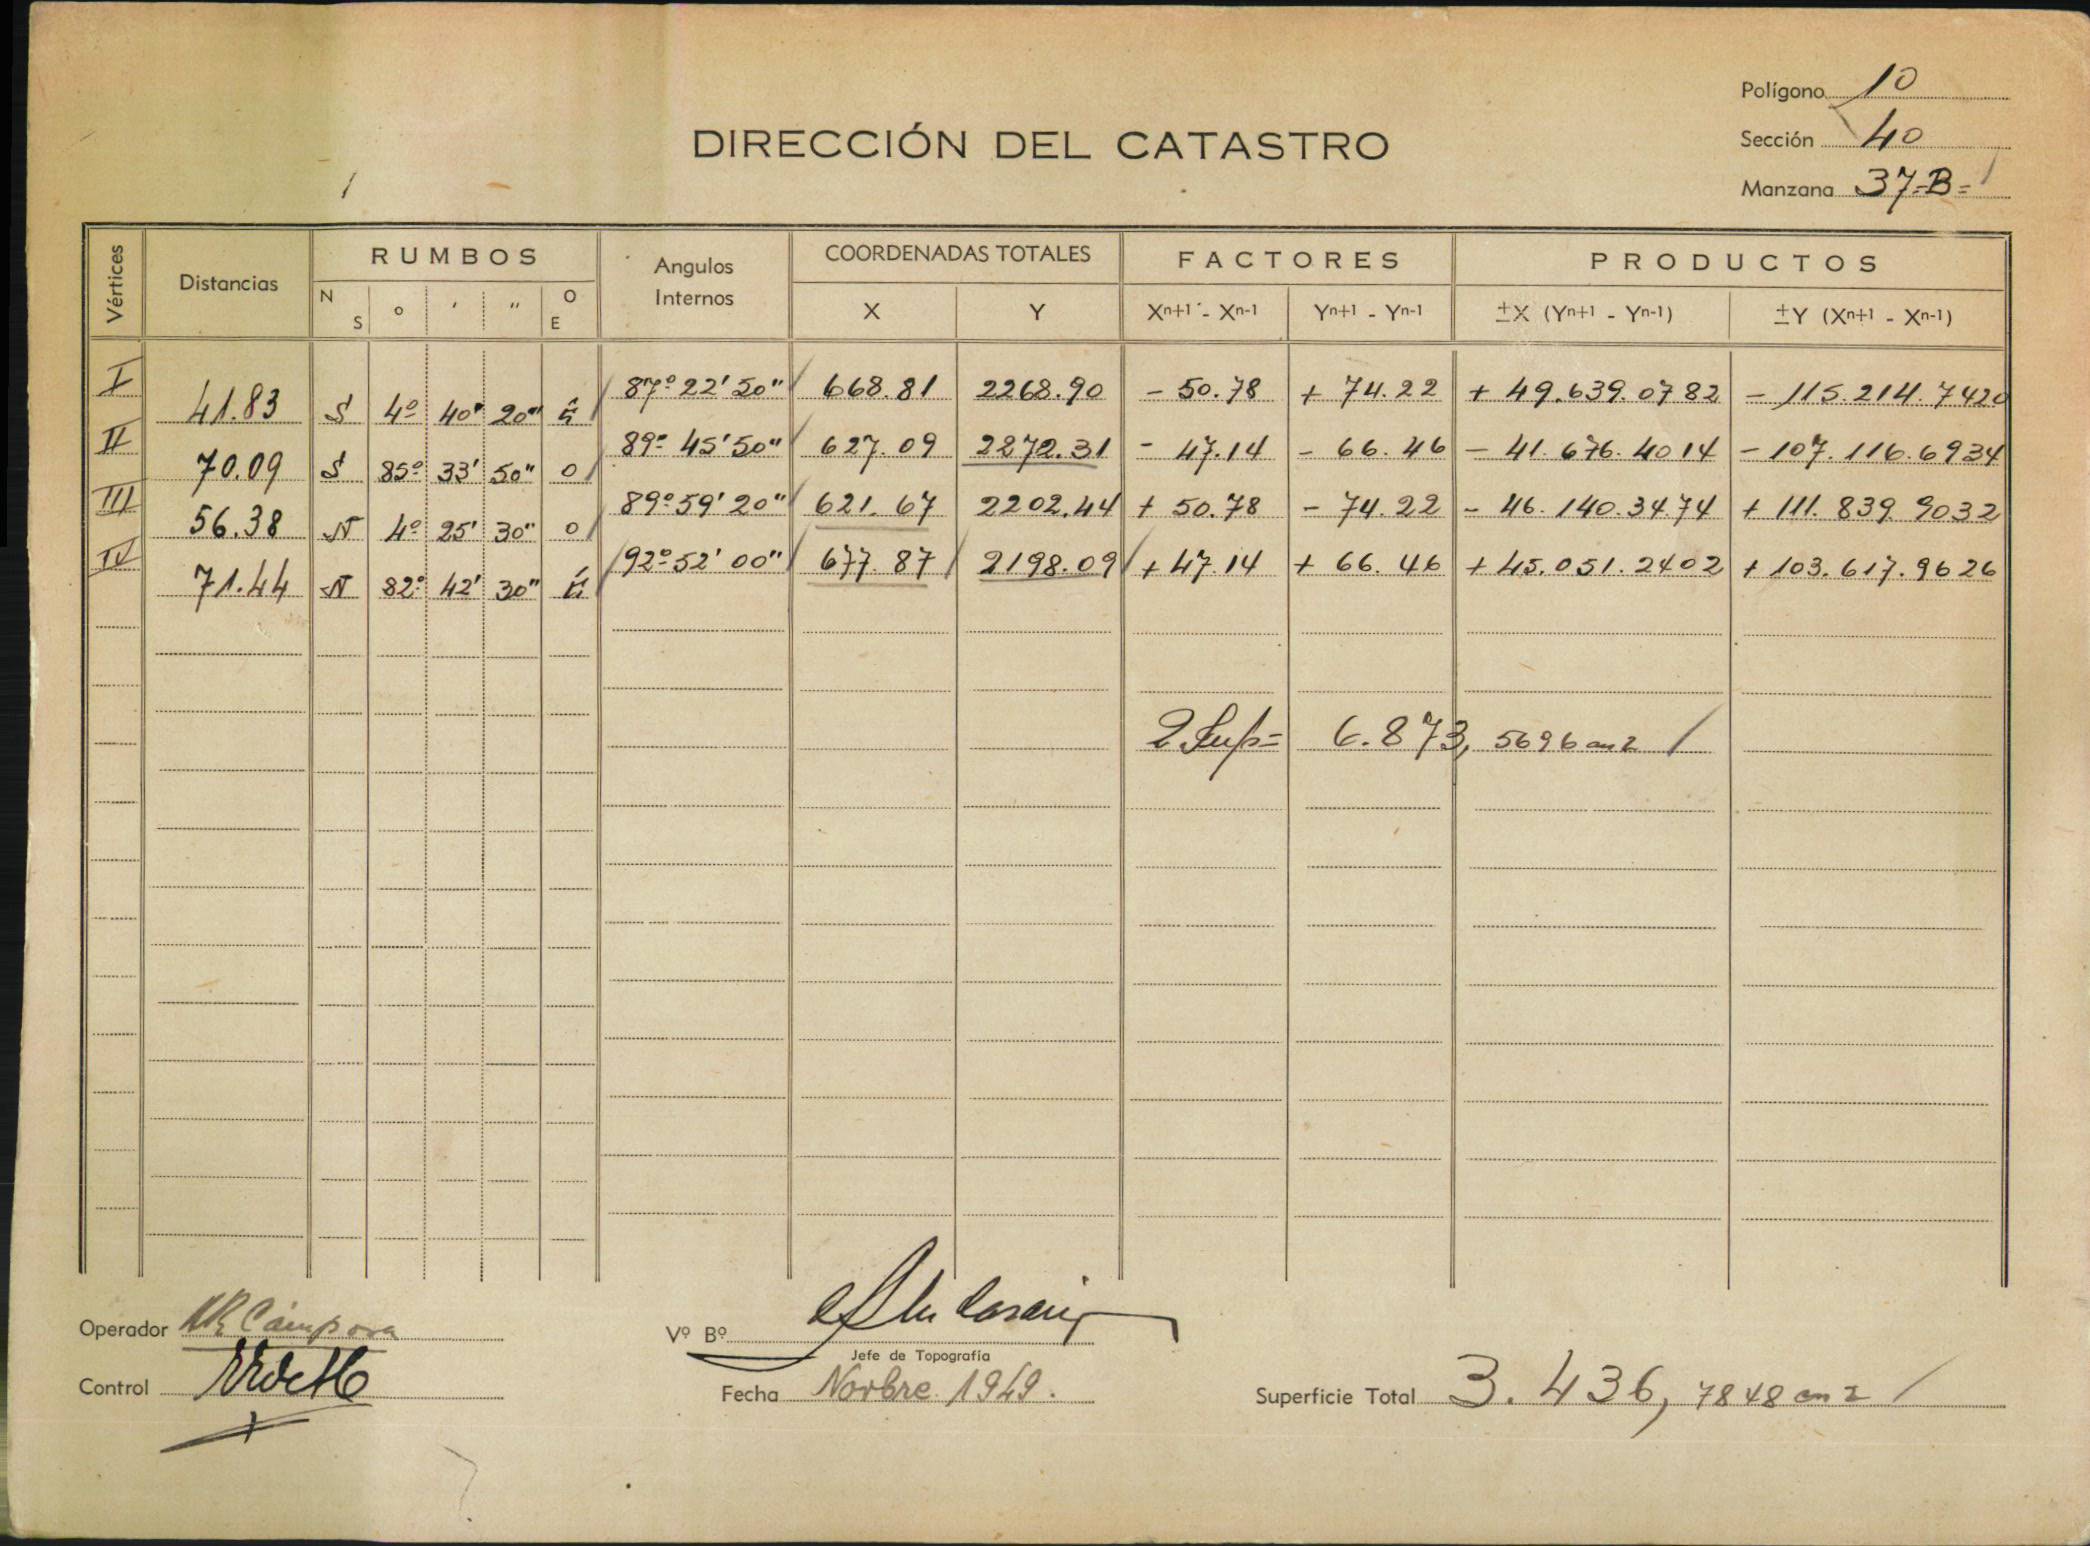 Polígono 10
DIRECCIÓN DEL CATASTRO
Sección 40
Manzana 37=B=
Vértices Distancias RUMBOS Angulos Internos COORDENADAS TOTALES FACTORES PRODUCTOS
N S ° ' " O E X Y Xn+1 - Xn-1 Yn+1 - Yn-1 ±X (Yn+1 - Yn-1) ±Y (Xn+1 - Xn-1)
I 87º22'50" 668.81 2268.90 - 50.78 + 74.22 + 49.639.0782 - 115.214.7420
41.83 S 4º 40' 20" E
II 89º 45'50" 627.09 2272.31 - 47.14 - 66.46 - 41.676.4014 - 107.116.6934
70.09 S 85º 33' 50" O
III 89º59'20" 621.67 2202.44 + 50.78 - 74.22 - 46.140.3474 + 111.839.9032
56.38 N 4º 25' 30" O
IV 92º52'00" 677.87 2198.09 + 47.14 + 66.46 + 45.051.2402 + 103.617.9626
71.44 N 82º 42' 30" E
2 Sup= 6.873, 5696 m2
Operador Cámpora
Vº Bº
Jefe de Topografía
Control
Fecha Novbre 1949.
Superficie Total 3.436, 7848 m2